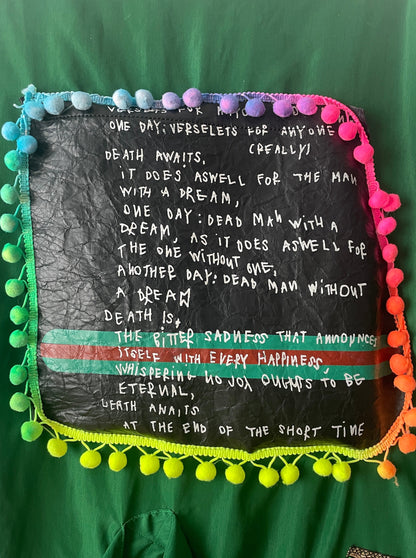 VERSELETS FOR
ONE DAY: VERSELETS FOR ANYONE
(REALLY)
DEATH AWAITS,
IT DOES ASWELL FOR THE MAN
WITH A DREAM,
ONE DAY: DEAD MAN WITH A
DREAM, AS IT DOES ASWELL FOR
THE ONE WITHOUT ONE,
ANOTHER DAY: DEAD MAN WITHOUT
A DREAM
DEATH IS,
THE BITTER SADNESS THAT ANNOUNCES
ITSELF WITH EVERY HAPPINESS,
WHISPERING NO JOY OUGHTS TO BE
ETERNAL,
DEATH AWAITS
AT THE END OF THE SHORT TIME